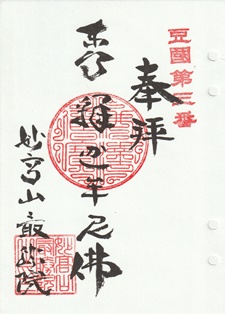 豆國第三番
奉拝
本尊釋迦牟尼佛
妙高山最勝院